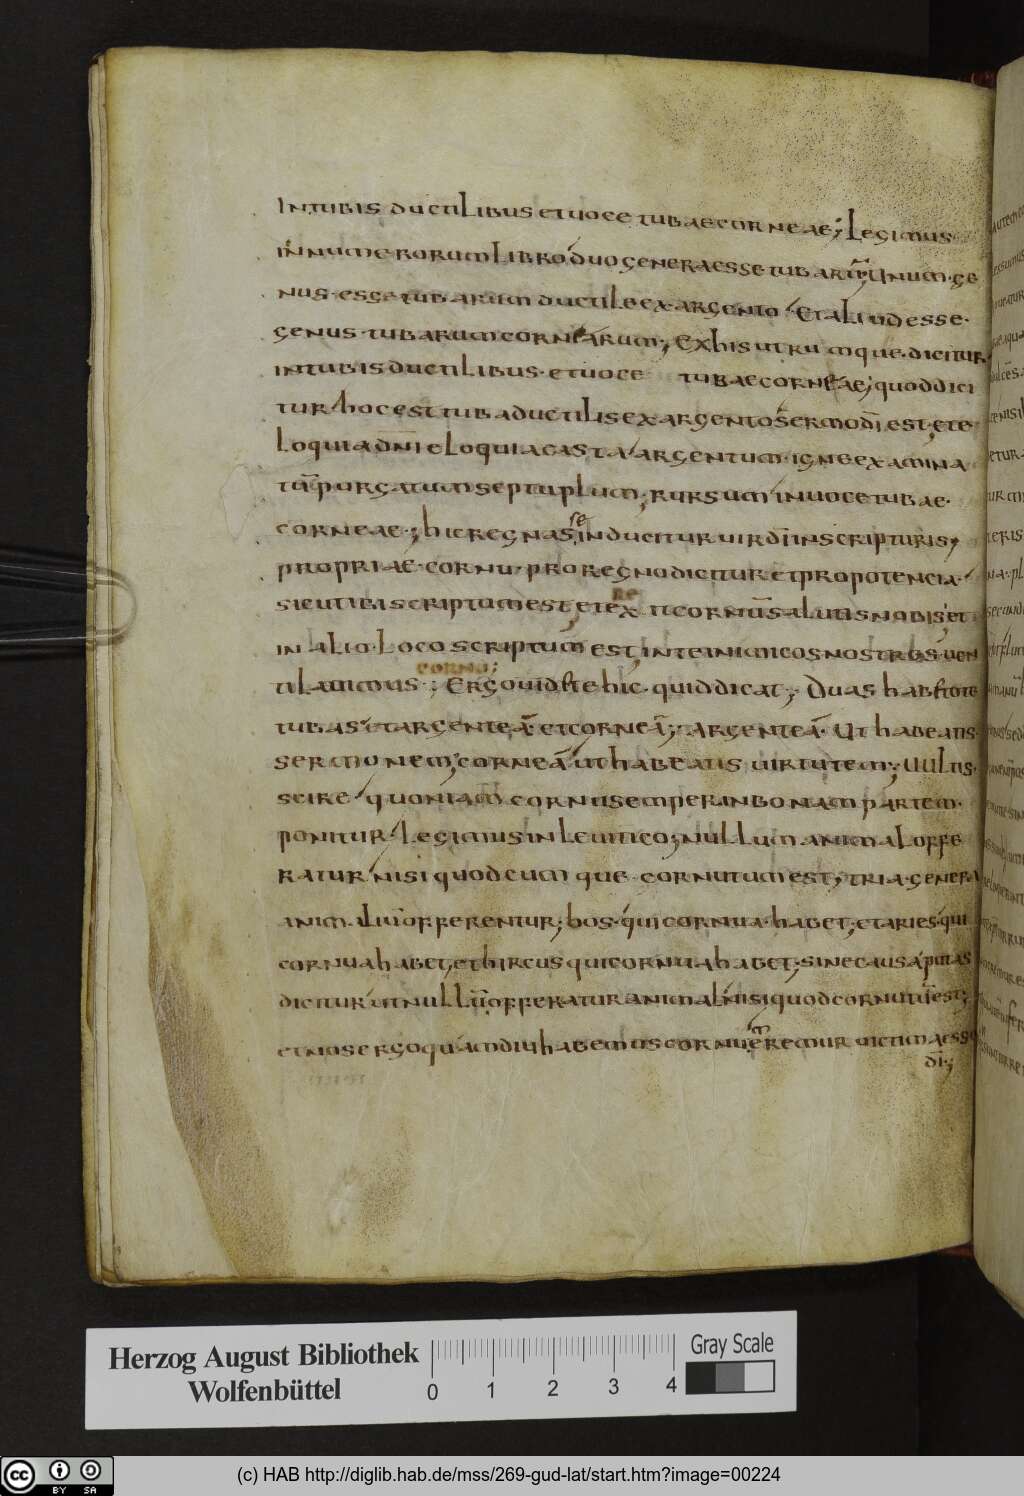 Intubis ductilibus etuoce tubaecorneae; Legimus
innumerorumlibro duogeneraesse tubarū; Unum ge
nus esse tubarum ductile ex argento Et aliud esse
genus tubarum cornearum; Ex his utrumque dicitur
intubis ductilibus etuoce tubae corneae; quoddici
tur hoc est tuba ductilis ex argento sermo dī est, ete
loquia dn̄i eloquia casta argentum igne examina
tū purgatum septuplum; rursum inuoce tubae
corneae; hic regnasse inducitur uir dī inscripturis,
propriae cornu pro regno dicitur et propotencia
sicutibi scriptum est, et erexit cornū salutis nobis, et
in alio loco scriptum est, inte inimicos nostros uen
tilauimus cornu; Ergo uidete hic quid dicat; Duas habetote
tubas et argenteā et corneā; Argenteā Ut habeatis
sermonem, corneā ut habeatis uirtutem; Uultis
scire quoniam cornu semper inbonam partem
ponitur legimus in leuitico, nullum animal offe
ratur nisi quodcumque cornutum est, tria genera
animaliū offerentur, bos qui cornua habet, et aries qui
cornua habet, et hircus qui cornua habet, sine causa putas
dicitur ut nullū offeratur animal nisi quod cornutū est,
et nos ergo quamdiu habemus cornu
dī;
Herzog August Bibliothek
Wolfenbüttel
0 1 2 3 4
Gray Scale
cc BY SA
(c) HAB http://diglib.hab.de/mss/269-gud-lat/start.htm?image=00224